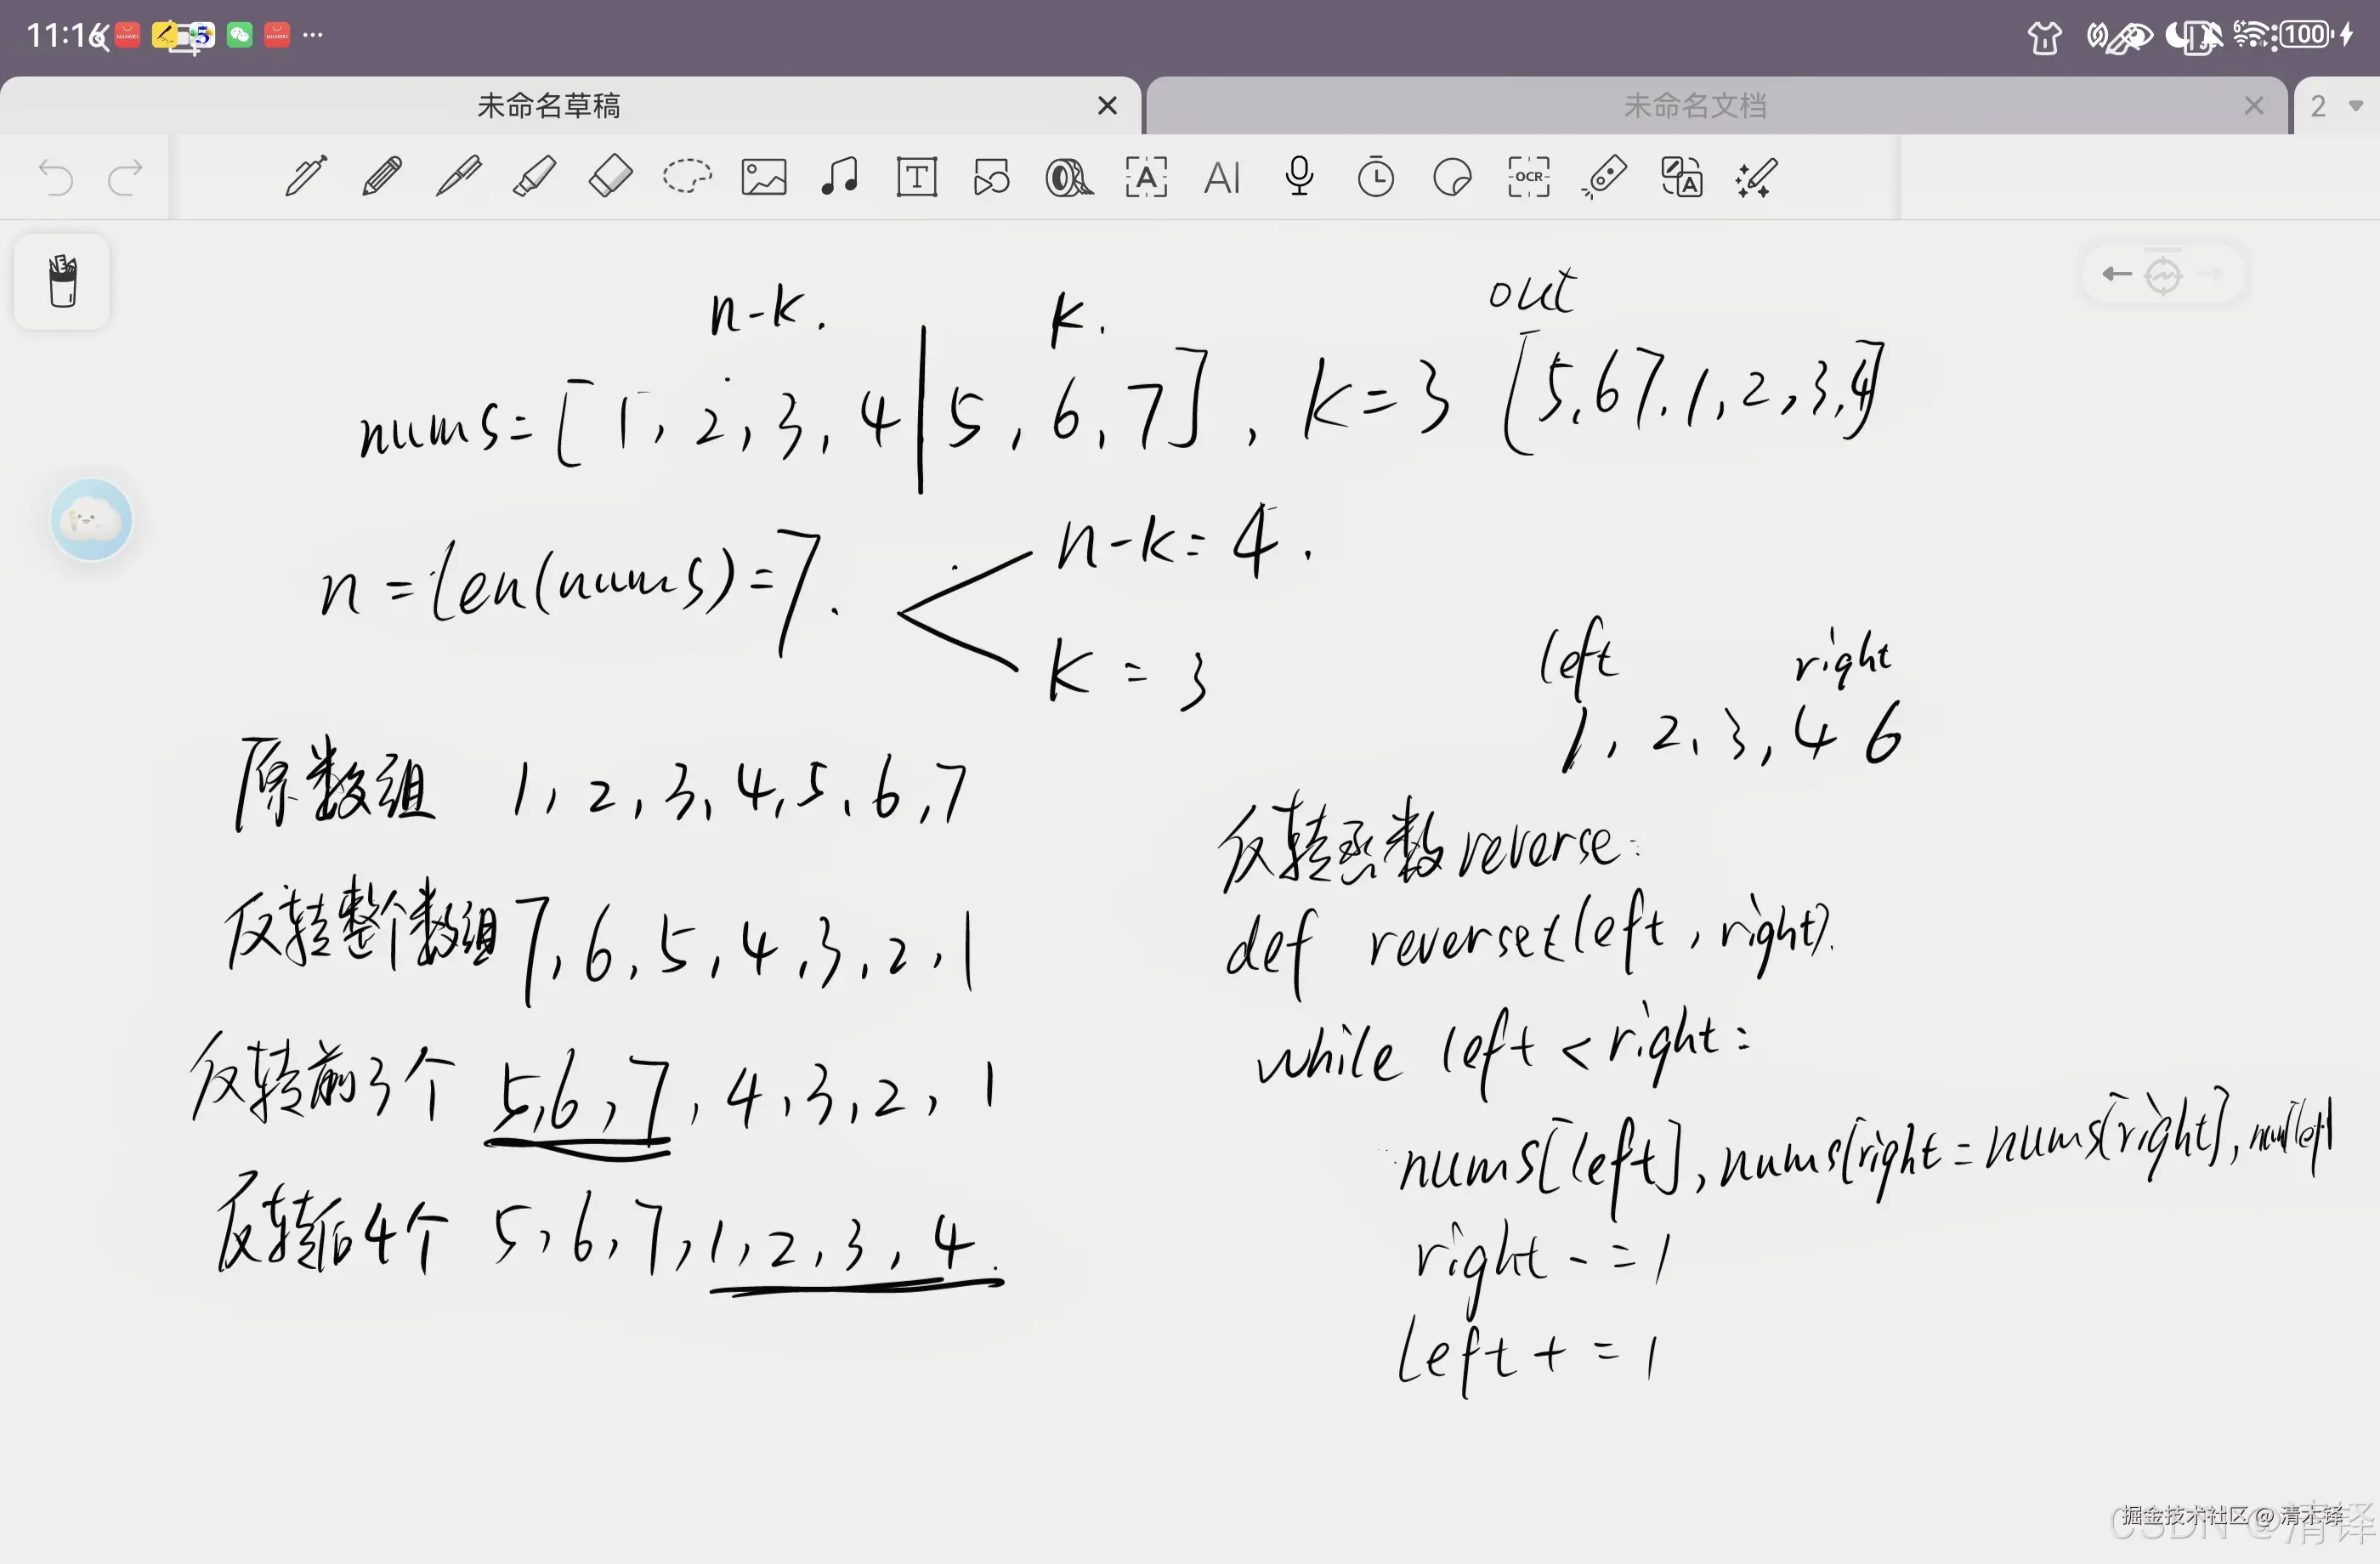 11:16
100
未命名草稿
未命名文档
2
T
A
AI
OCR
A
n-k.
k.
out
nums=[1,2,3,4|5,6,7],k=3 [5,67,1,2,3,4]
n=len(nums)=7.
n-k=4.
k=3
left right
1,2,3,4 6
原数组 1,2,3,4,5,6,7
反转整个数组 7,6,5,4,3,2,1
反转前3个 5,6,7,4,3,2,1
反转后4个 5,6,7,1,2,3,4.
反转函数reverse:
def reverse(left,right).
while left<right:
nums[left],nums[right=nums[right],num[left]
right -=1
left +=1
掘金技术社区 @ 清木铎
CSDN @清铎